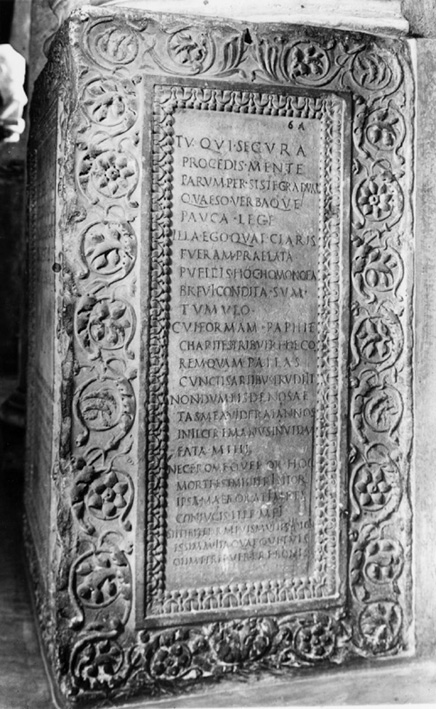 6A
TV·QVI·SECVRA
PROCEDIS·MENTE
PARVMPER·SISTE GRADVM
QVAESO VERBAQVE
PAVCA·LEGE
ILLA EGO QVAE CLARIS
FVERAM·PRAELATA
PVELLIS HOC HOMONOEA
BREVI CONDITA·SVM·
TVMVLO·
CVI FORMAM·PAPHIE
CHARITES TRIBVERE DECO
REM QVAM PALLAS
CVNCTIS ARTIBVS ERVDIIT
NONDVM BIS DENOS AE
TAS MEA VIDERAT ANNOS
INIECERE MANVS INVIDA
FATA MIHI
NEC PRO ME QVEROR HOC
MORTE EST MIHI TRISTIOR
IPSA MAEROR ATIMETI
CONIVGIS ILLE MEI